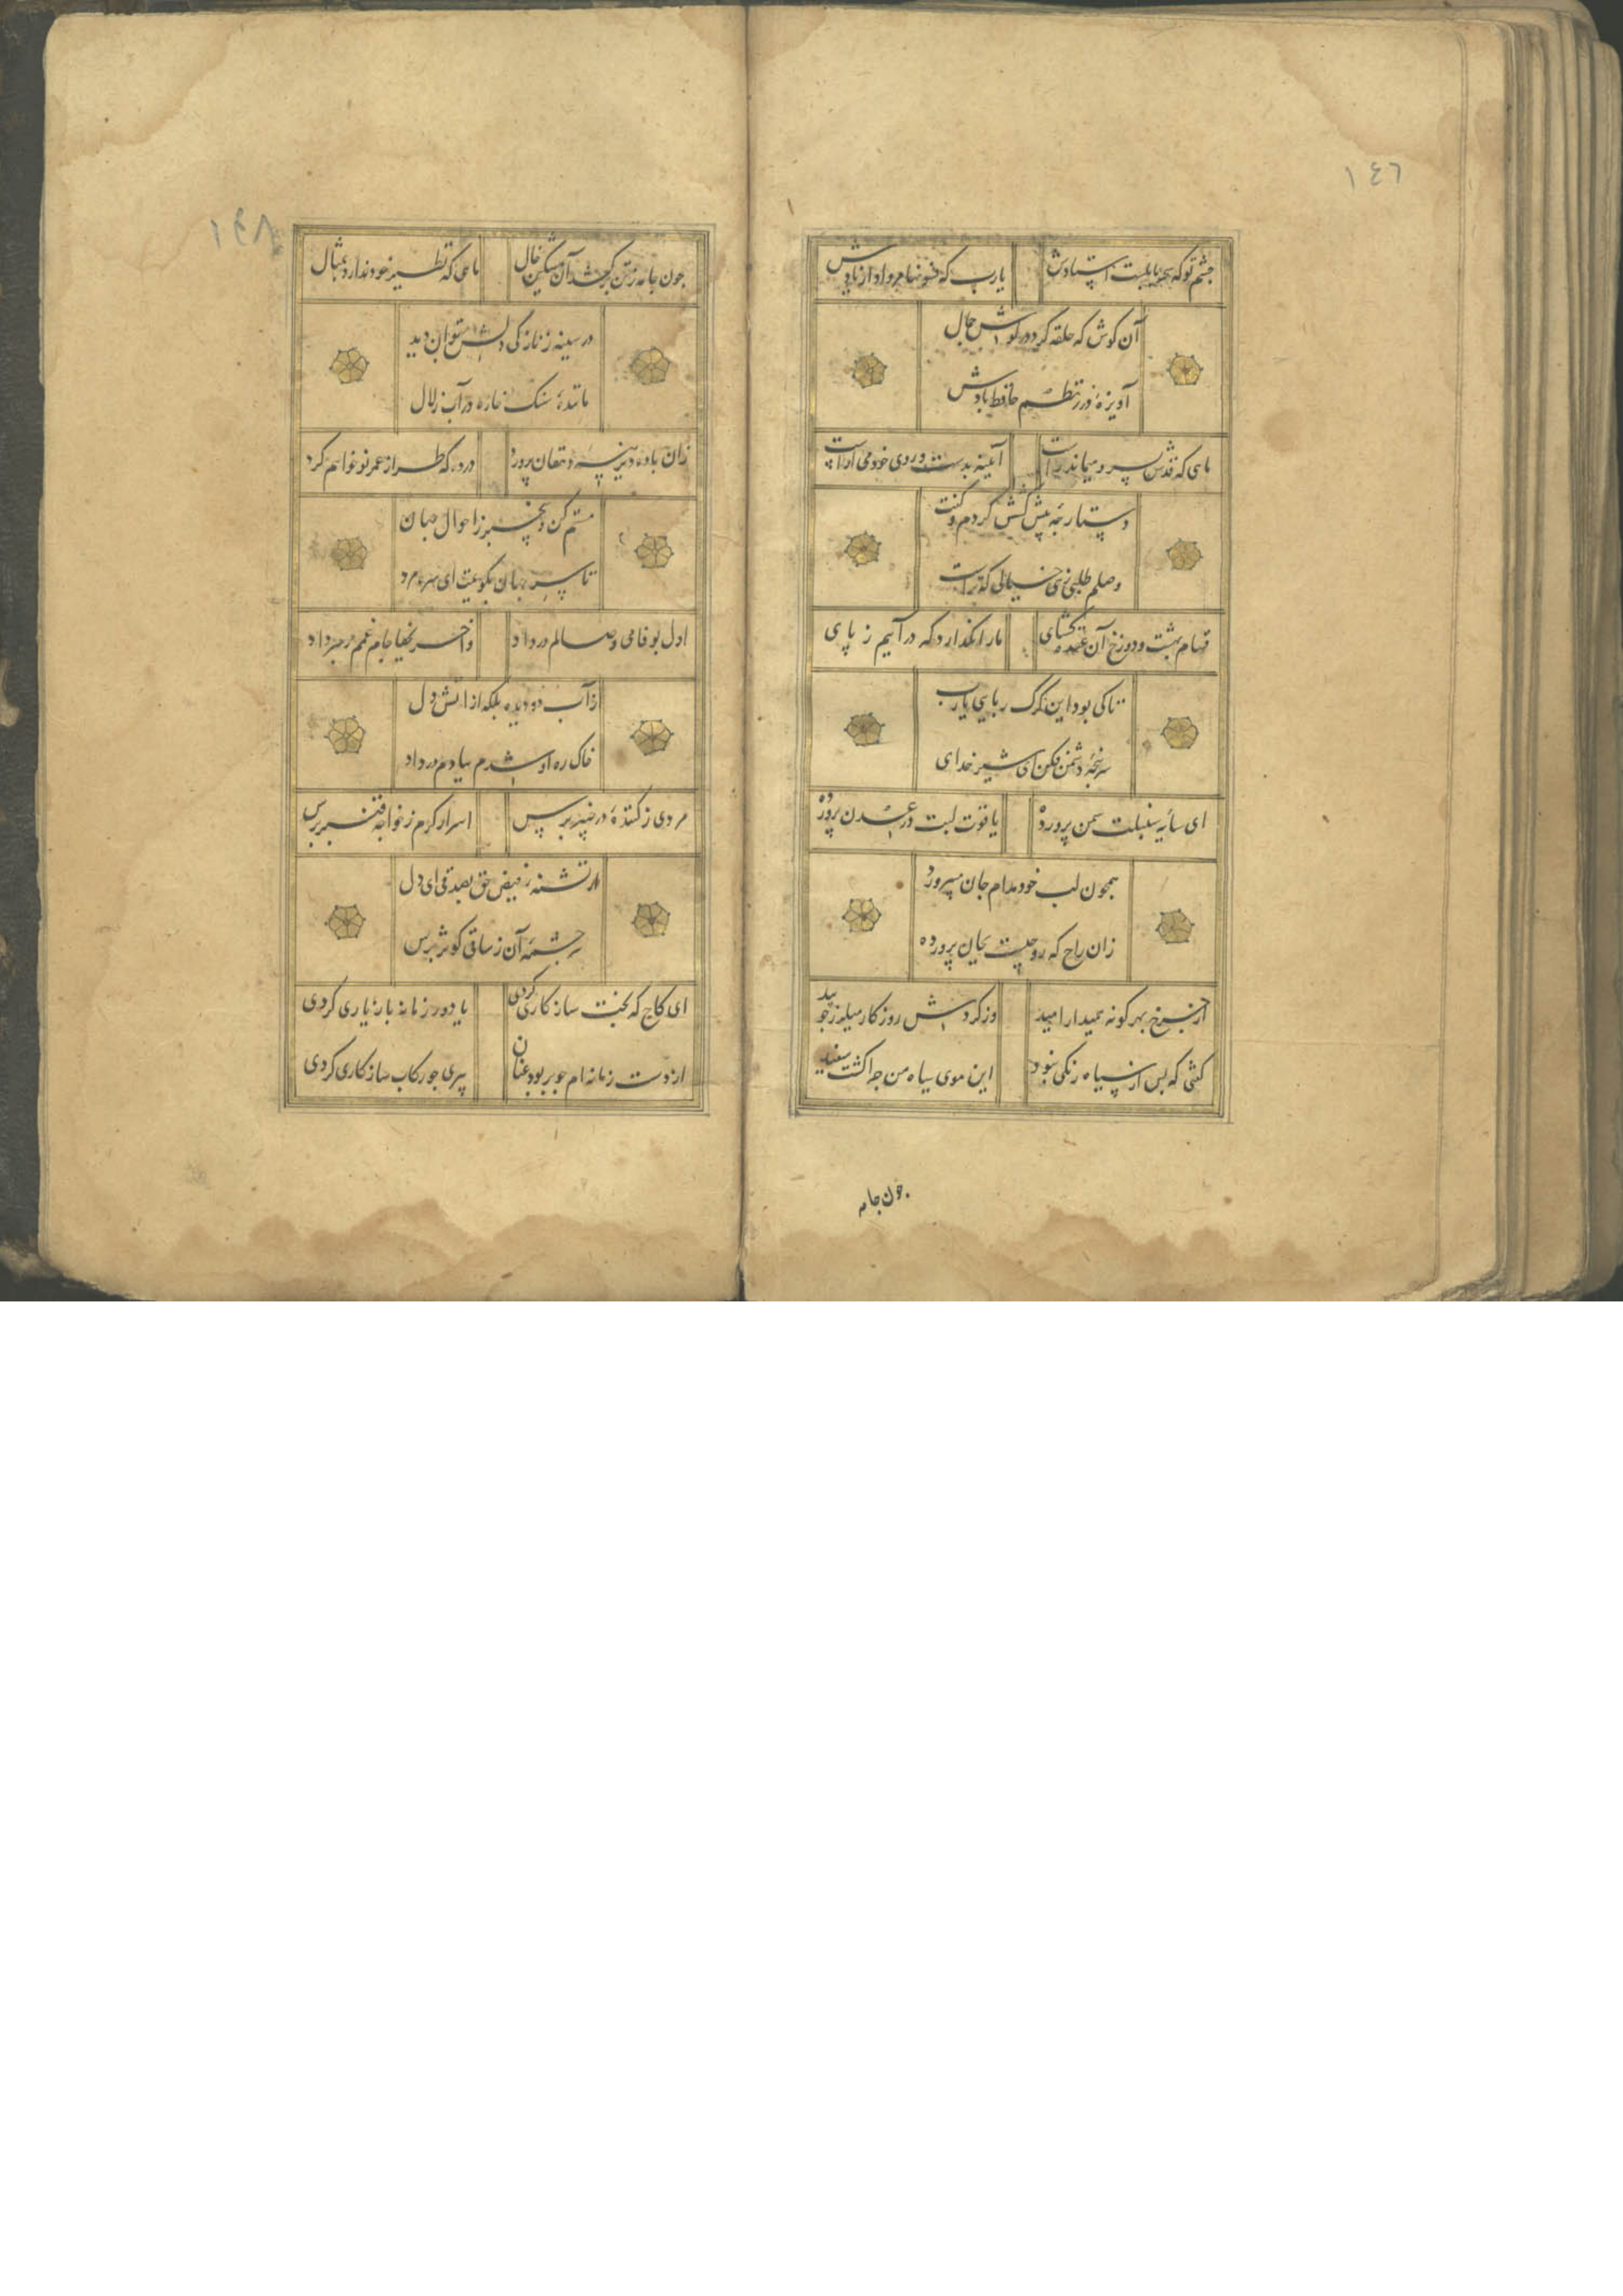 ١٤٦
چشم تو که سحر بابلست استادش یارب که فسونها مرواد از یادش
آن کوش که حلقه کرد در کوش جمال
آویزهٔ در ز نظم حافظ بادش
ماهی که قدش بسرو میماند راست آیینه بدست و روی خود می اراست
دستارچهٔ پیش کشش کردم و کفت
وصلم طلبی زهی خیالی که تراست
قسام بهشت و دوزخ آن عقده کشای ما را نکذارد که درآییم ز پای
تا کی بود این کرک ربایی یارب
سرپنجهٔ دشمن فکن ای شیر خدای
ای سایهٔ سنبلت سمن پرورده یاقوت لبت در عدن پرورده
همچون لب خود مدام جان میپرور
زان راح که روحیست بجان پرورده
از چرخ بهر کونه همیدار امید وز کردش روزکار میلرز چو بید
کفتی که پس از سیاه رنکی نبود این موی سیاه من چرا کشت سفید
جون جامه
١٤٨
جون جامه ز تن برکشد آن مشکین خال ماهی که نظیر خود ندارد بمثال
در سینه ز نازکی دلش بتوان دید
مانندهٔ سنک خاره در آب زلال
زان بادهٔ دیرینهٔ دهقان پرورد درده که طراز عمر نو خواهم کرد
مستم کن و بیخبر ز احوال جهان
تا سر جهان بکویمت ای سره مرد
اول بوفا می وصالم در داد
از آب دو دیده بلکه از اتش دل
خاک ره او شدم ببادم در داد
مردی ز کنندهٔ در خیبر پرس اسرار کرم ز خواجهٔ قنبر پرس
ار تشنهٔ فیض حق بصدقی ای دل
سرچشمهٔ آن ز ساقی کوثر پرس
ای کاج که بخت سازکاری کردی یا دور زمانه باز یاری کردی
از دست زمانه ام چو بربود عنان پیری جو رکاب سازکاری کردی